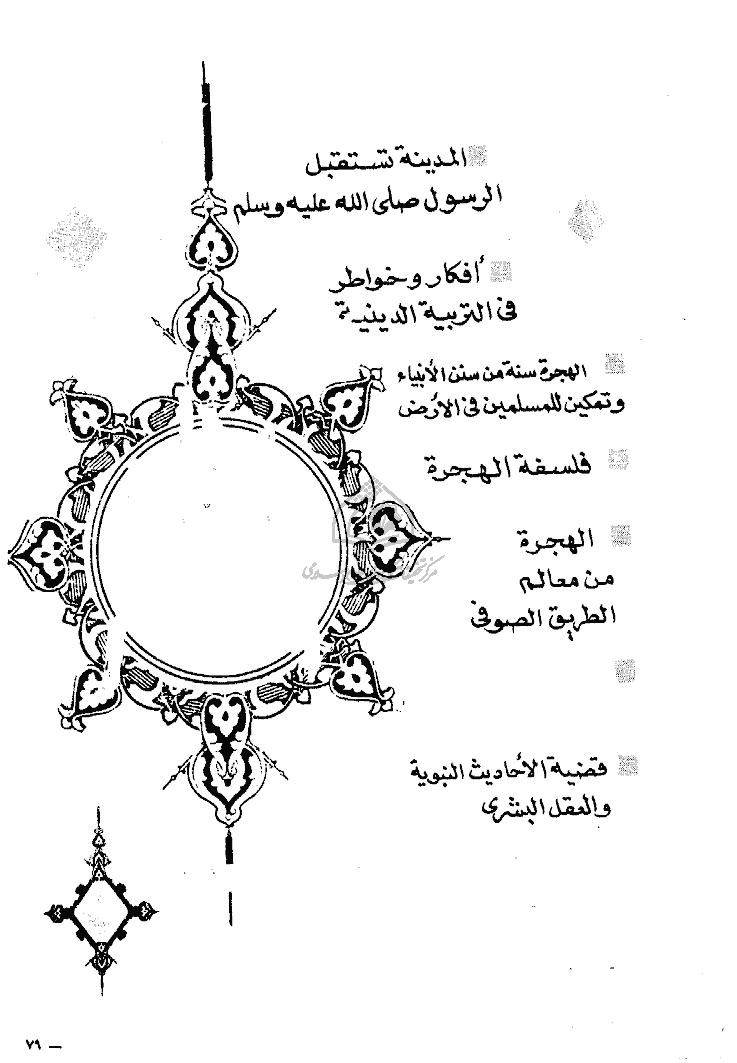 المدينة تستقبل
الرسول صلى الله عليه وسلم
أفكار وخواطر
فى التربية الدينية
الهجرة سنة من سنن الأنبياء
وتمكين للمسلمين فى الأرض
فلسفة الهجرة
الهجرة
من معالم
الطريق الصوفى
قضية الأحاديث النبوية
والعقل البشرى
٧٩ —